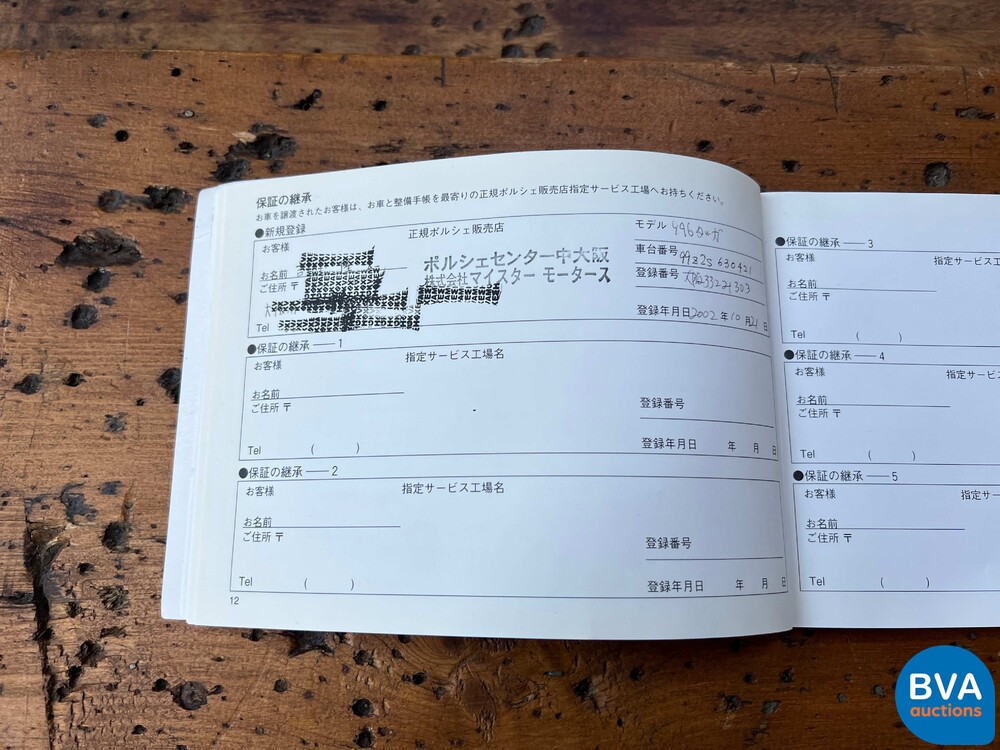 保証の継承
お車を譲渡されたお客様は、お車と整備手帳を最寄りの正規ポルシェ販売店指定サービス工場へお持ちください。
●新規登録
お客様
正規ポルシェ販売店
モデル 996タルガ
お名前
ポルシェセンター中大阪
車台番号 99Z2S 630421
ご住所 〒
株式会社マイスター モータース
登録番号 大阪332 303
Tel
登録年月日 2002 年 10 月 21 日
●保証の継承 — 1
お客様
指定サービス工場名
お名前
ご住所 〒
登録番号
Tel ( )
登録年月日 年 月 日
●保証の継承 — 2
お客様
指定サービス工場名
お名前
ご住所 〒
登録番号
Tel ( )
登録年月日 年 月 日
12
●保証の継承 — 3
お客様
指定サービス工
お名前
ご住所 〒
Tel ( )
●保証の継承 — 4
お客様
指定サービス
お名前
ご住所 〒
Tel ( )
●保証の継承 — 5
お客様
指定サー
お名前
ご住所 〒
Tel ( )
BVA
auctions